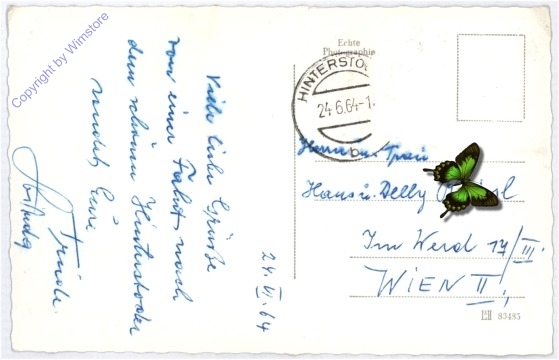 Copyright by Wimstore
Viele liebe Grüße
von einer Fahrt nach
dem schönen Hinterstoder
sendet Eure
Trude
24. VI. 64
Echte
Photographie
HINTERSTO
24.6.64-1
b
Herrn u. Frau
Hans u. Delly
Im Werd 17/III.
WIEN II.,
83485